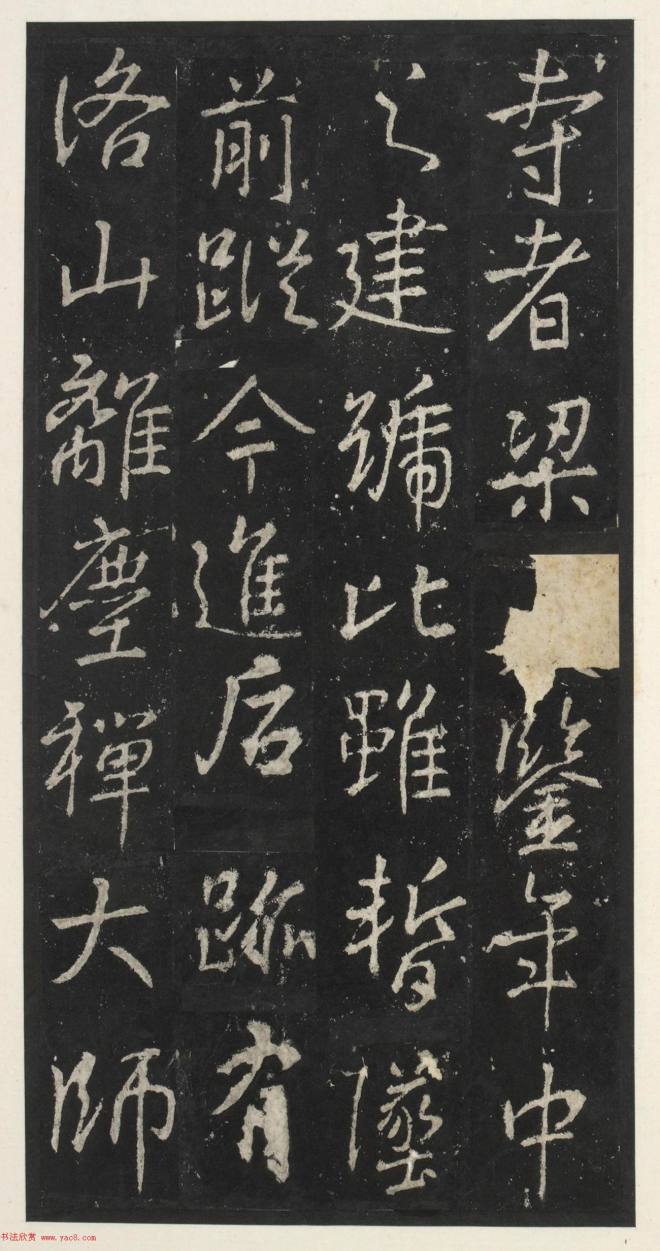 寺者梁鑒年中
之建號比雖暫墜
前蹤今進后跡有
洛山離塵禪大師
书法欣赏 www.yac8.com